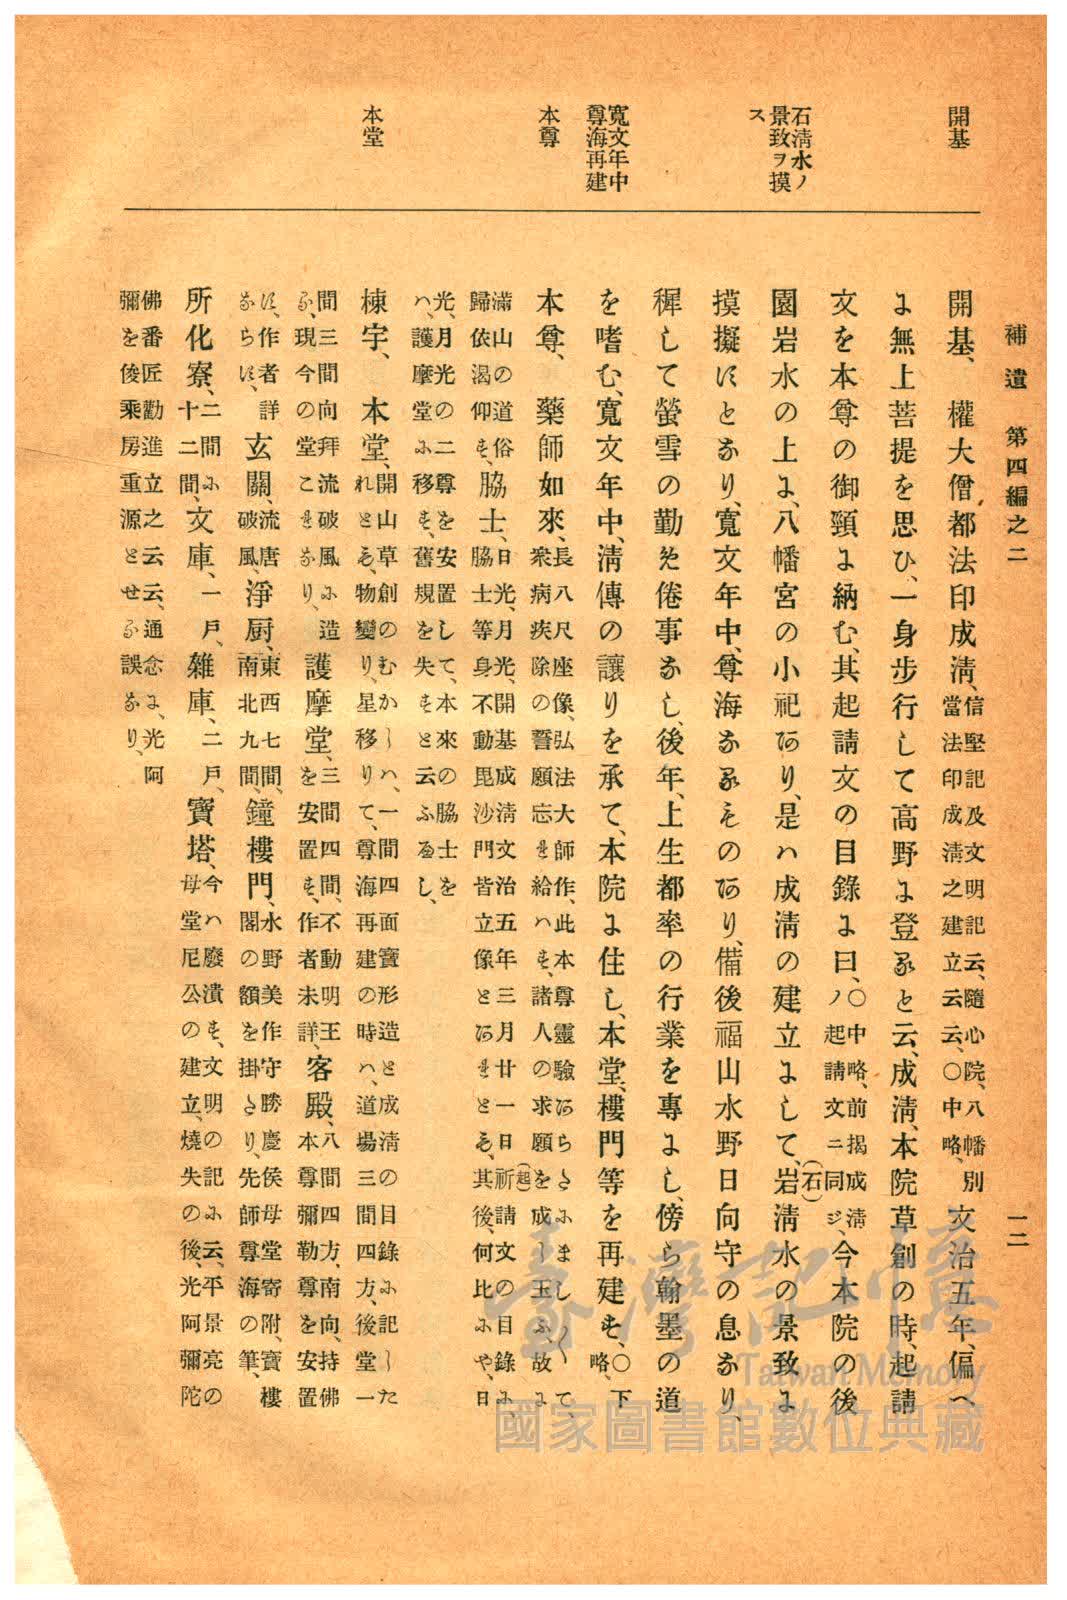 補遺 第四編之二 一二
開基
石淸水ノ
景致ヲ摸
ス
寬文年中
尊海再建
本尊
本堂
開基、權大僧都法印成淸、信堅記及文明記云、隨心院、八幡別
當法印成淸之建立云云、〇中略、文治五年、偏へ
に無上菩提を思ひ、一身步行して高野に登ると云、成淸、本院草創の時、起請
文を本尊の御頸に納む、其起請文の目錄に曰、〇中略、前揭成淸
起請文ニ同ジ、今本院の後
園岩水の上に、八幡宮の小祀あり、是ハ成淸の建立にして、岩(石)淸水の景致に
摸擬すとなり、寬文年中、尊海なるものあり、備後福山水野日向守の息なり、
穉して螢雪の勤め倦事なし、後年、上生都率の行業を專にし、傍ら翰墨の道
を嗜む、寬文年中、淸傳の讓りを承て、本院に住し、本堂、樓門等を再建す、〇下
略、
本尊、藥師如來、長八尺座像、弘法大師作、此本尊靈驗あらたにまし〱て、
衆病疾除の誓願忘せ給ハす、諸人の求願を成し玉ふ、故に
滿山の道俗
歸依渴仰す、脇士、日光、月光、開基成淸文治五年三月廿一日祈(起)請文の目錄に、
脇士等身不動毘沙門皆立像とあれとも、其後、何比にや、日
光、月光の二尊を安置して、本來の脇士を
ハ、護摩堂に移す、舊規を失すと云ふへし、
棟宇、本堂、開山草創のむかしハ、一間四面寶形造と成淸の目錄に記した
れとも、物變り、星移りて、尊海再建の時ハ、道場三間四方、後堂一
間三間向拜流破風に造
る、現今の堂これなり、護摩堂、三間四間、不動明王
を安置す、作者未詳、客殿、八間四方、南向、持佛
本尊彌勒尊を安置
す、作者詳
ならす、玄關、流唐
破風、淨厨、東西七間、
南北九間、鐘樓門、水野美作守勝慶侯母堂寄附、寶樓
閣の額を掛たり、先師尊海の筆、
所化寮、二間に
十二間、文庫、一戶、雜庫、二戶、寶塔、今ハ廢潰す、文明の記に云、平景亮の
母堂尼公の建立、燒失の後、光阿彌陀
佛番匠勸進立之云云、通念に、光阿
彌を俊乘房重源とせる誤なり、
臺灣記憶
Taiwan Memory
國家圖書館數位典藏